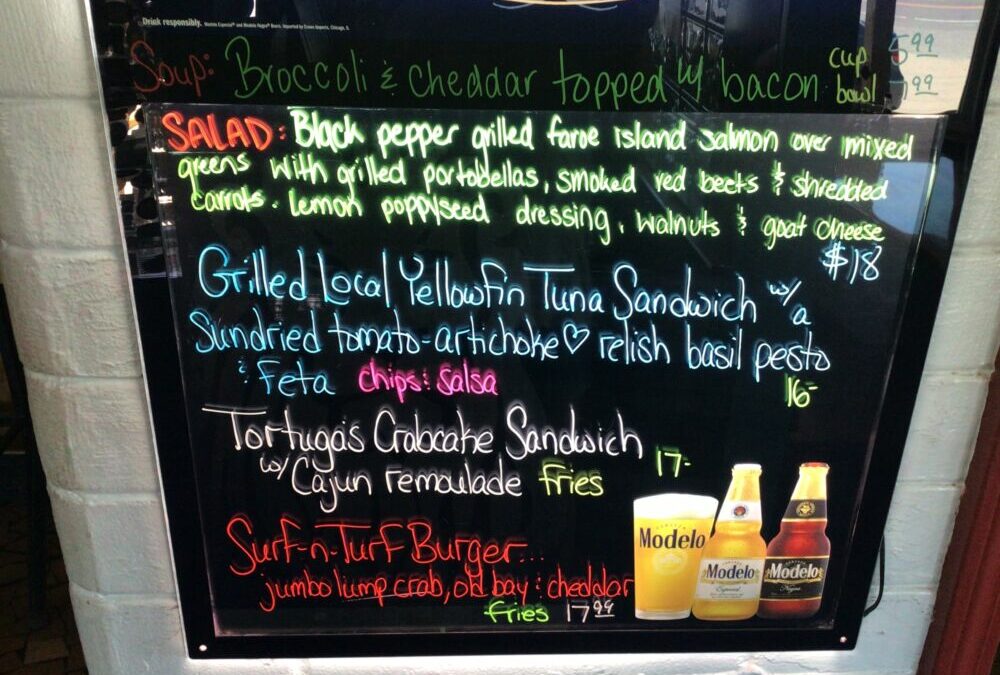 Drink responsibly. Modelo Especial® and Modelo Negra® Beers. Imported by Crown Imports, Chicago, IL
Soup: Broccoli & cheddar topped w/ bacon cup 5.99
bowl 7.99
SALAD: Black pepper grilled faroe island salmon over mixed
greens with grilled portobellas, smoked red beets & shredded
carrots. Lemon poppyseed dressing, walnuts & goat cheese
$18
Grilled Local Yellowfin Tuna Sandwich w/ a
Sundried tomato-artichoke♡ relish basil pesto
& Feta chips & salsa 16-
Tortuga's Crabcake Sandwich
w/ Cajun remoulade fries 17-
Surf-n-Turf Burger...
jumbo lump crab, old bay & cheddar
fries 17.99
Modelo
Modelo
Especial
Modelo
Negra